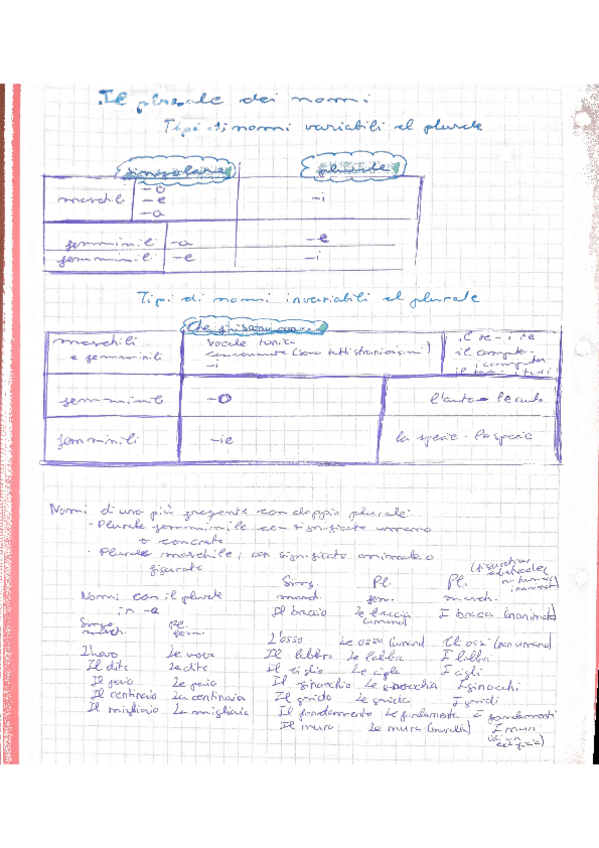 Il plurale dei nomi
Tipi di nomi variabili al plurale
singolare plurale
maschili -o
-e -i
-a
femminili -a -e
femminili -e -i
Tipi di nomi invariabili al plurale
Che finiscono con
maschili vocale tonica il re - i re
e femminili consonante (sono tutti stranierismi) il computer
-i i computer
femminili -o l'auto - le auto
femminili -ie la specie - le specie
Nomi di uso più frequente con doppio plurale:
- Plurale femminile con significato umano
o concreto
- Plurale maschile, con significato
figurato
Sing. Pl. Pl.
Nomi con il plurale masch. fem. masch.
in -a Il braccio Le braccia I bracci (inanimato)
Sing. Pl. (umano)
masch. fem. L'osso Le ossa (umano) Gli ossi (non umano)
L'uovo Le uova Il labbro Le labbra I labbri
Il dito Le dita Il ciglio Le ciglia I cigli
Il paio Le paia Il ginocchio Le ginocchia I ginocchi
Il centinaio Le centinaia Il grido Le grida I gridi
Il migliaio Le migliaia Il fondamento Le fondamenta I fondamenti
Il muro Le mura I muri
(di un
edificio)